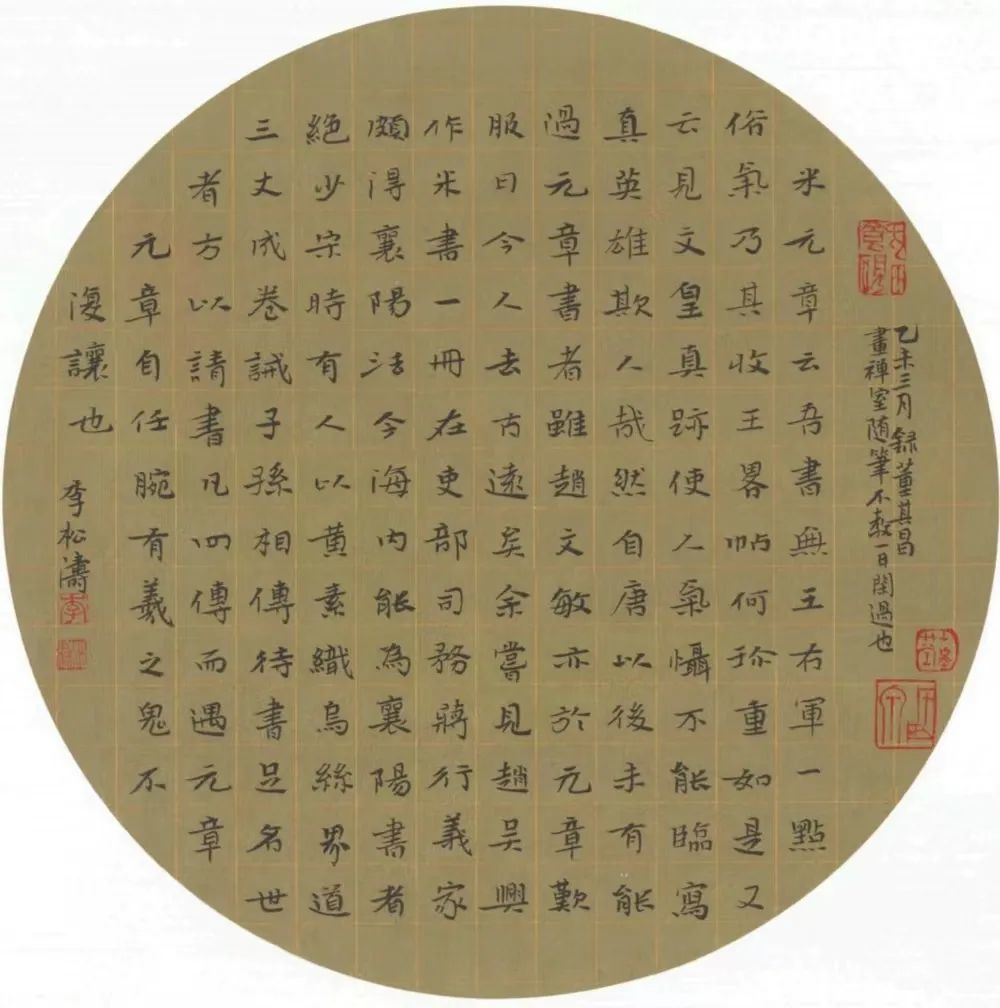 乙未三月録董其昌
畫禪室随筆不教一日閑過也
米元章云吾書無王右軍一點
俗氣乃其收王畧帖何珎重如是又
云見文皇真跡使人氣懾不能臨寫
真英雄欺人哉然自唐以後未有能
過元章書者雖趙文敏亦於元章歎
服曰今人去古遠矣余嘗見趙吴興
作米書一冊在吏部司務蔣行義家
頗得襄陽法今海内能為襄陽書者
絶少宋時有人以黄素織烏絲界道
三丈成卷誡子孫相傳待書足名世
者方以請書凡四傳而遇元章
元章自任腕有羲之鬼不
復讓也 李松濤